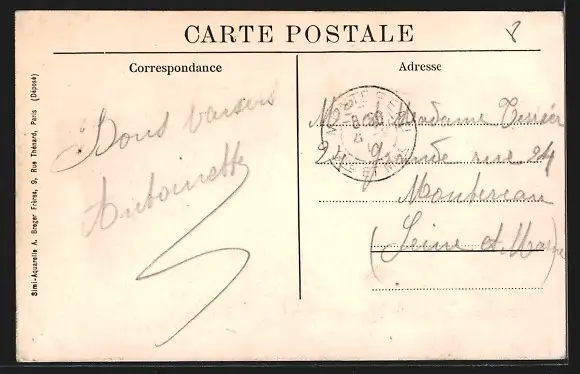 CARTE POSTALE
8
Correspondance
Adresse
Bons baisers
Antoinette
M Madame
24 grande rue 24
Montereau
(Seine et Marne
Simi-Aquarelle A. Breger Frères, 9, Rue Thénard, Paris (Déposé)